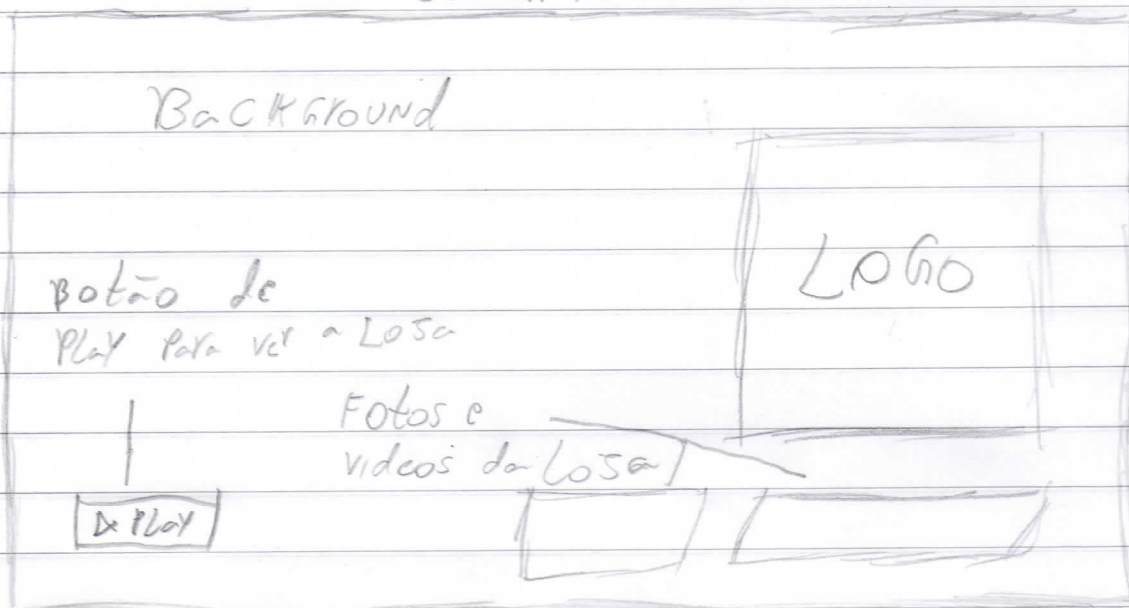 BacKGround
LOGO
Botão de
PLay Para ver a LoJa
Fotos e
videos da LoJa
PLay